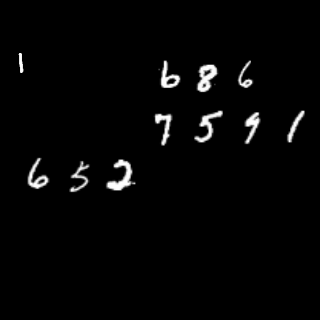 1
686
7591
652